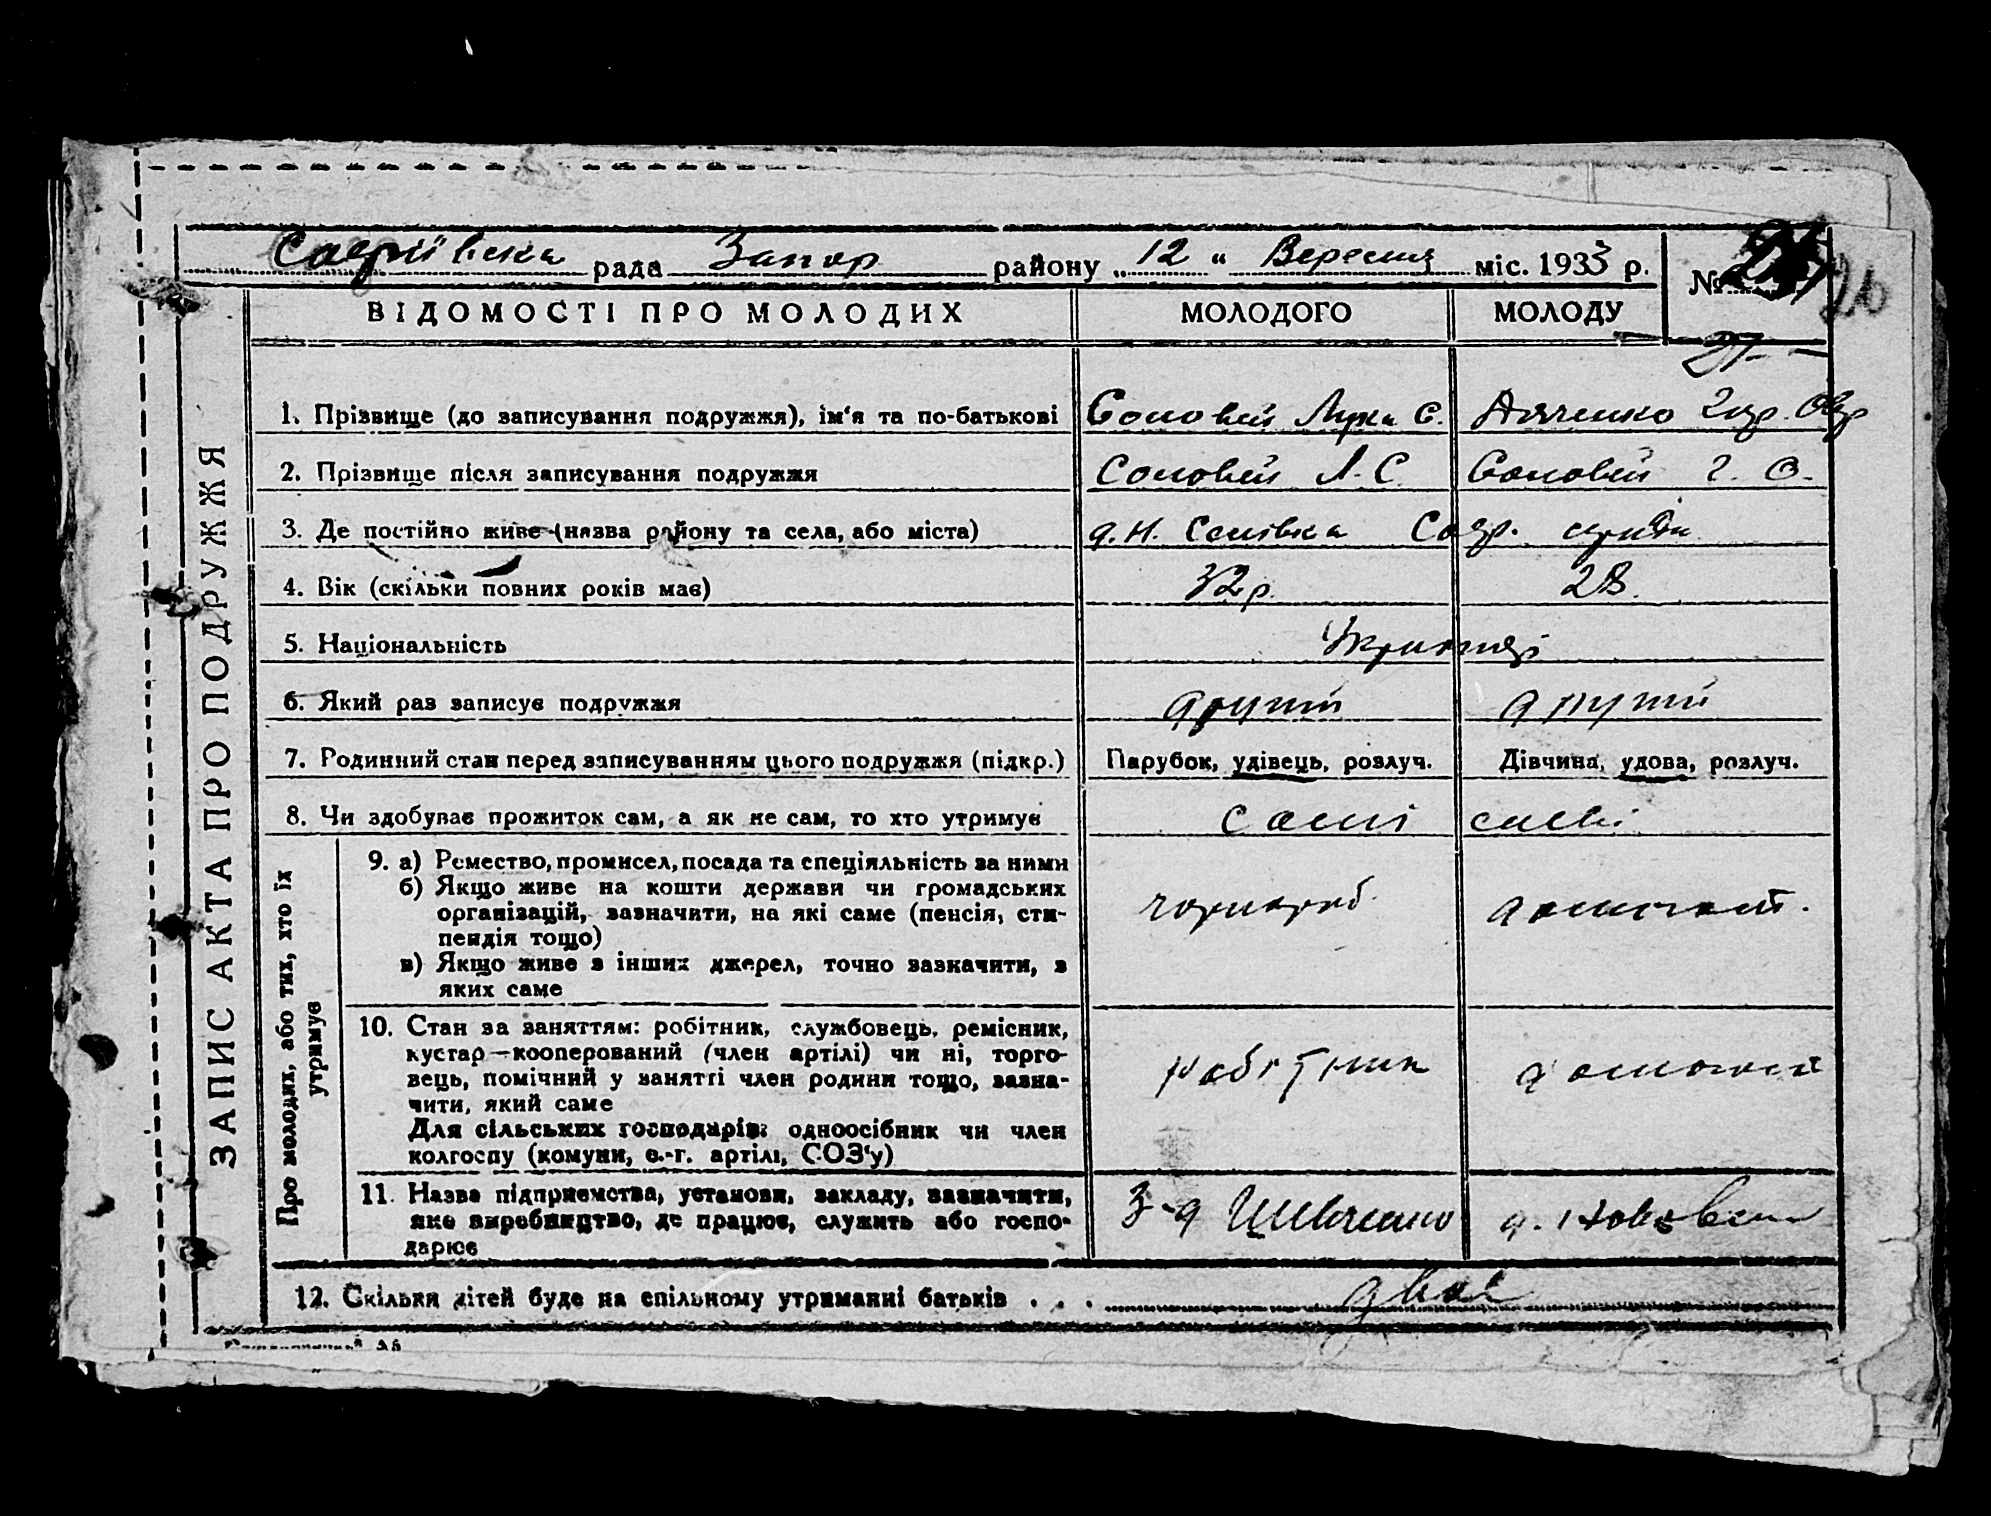 Софіївська рада Запор району „12“ Вересня міс. 1933 р.
№
ВІДОМОСТІ ПРО МОЛОДИХ МОЛОДОГО МОЛОДУ
27
26
ЗАПИС АКТА ПРО ПОДРУЖЖЯ
1. Прізвище (до записування подружжя), ім‘я та по-батькові Соловей Лука С. Дяченко
2. Прізвище після записування подружжя Соловей Л. С. Соловей Г. О.
3. Де постійно живе (назва району та села, або міста)
4. Вік (скільки повних років має) 32 р. 28.
5. Національність Українці
6. Який раз записує подружжя другий другий
7. Родинний стан перед записуванням цього подружжя (підкр.) Парубок, удівець, розлуч. Дівчина, удова, розлуч.
8. Чи здобуває прожиток сам, а як не сам, то хто утримує самі
Про молодих, або тих, хто їх
утримує
9. а) Ремество, промисел, посада та спеціяльність за ними
б) Якщо живе на кошти держави чи громадських
організацій, зазначити, на які саме (пенсія, сти-
пендія тощо)
в) Якщо живе з інших джерел, точно зазначити, з
яких саме
чорнороб. домогосп.
10. Стан за заняттям: робітник, службовець, ремісник,
кустар—кооперований (член артілі) чи ні, торго-
вець, помічний у занятті член родини тощо, зазна-
чити, який саме
Для сільських господарів: одноосібник чи член
колгоспу (комуни, с.-г. артілі, СОЗ‘у)
робітник домогосп
11. Назва підприємства, установи, закладу, зазначити,
яке виробництво, де працює, служить або госпо-
дарює
З-д Шевченко
12. Скільки дітей буде на спільному утриманні батьків . . . двоє